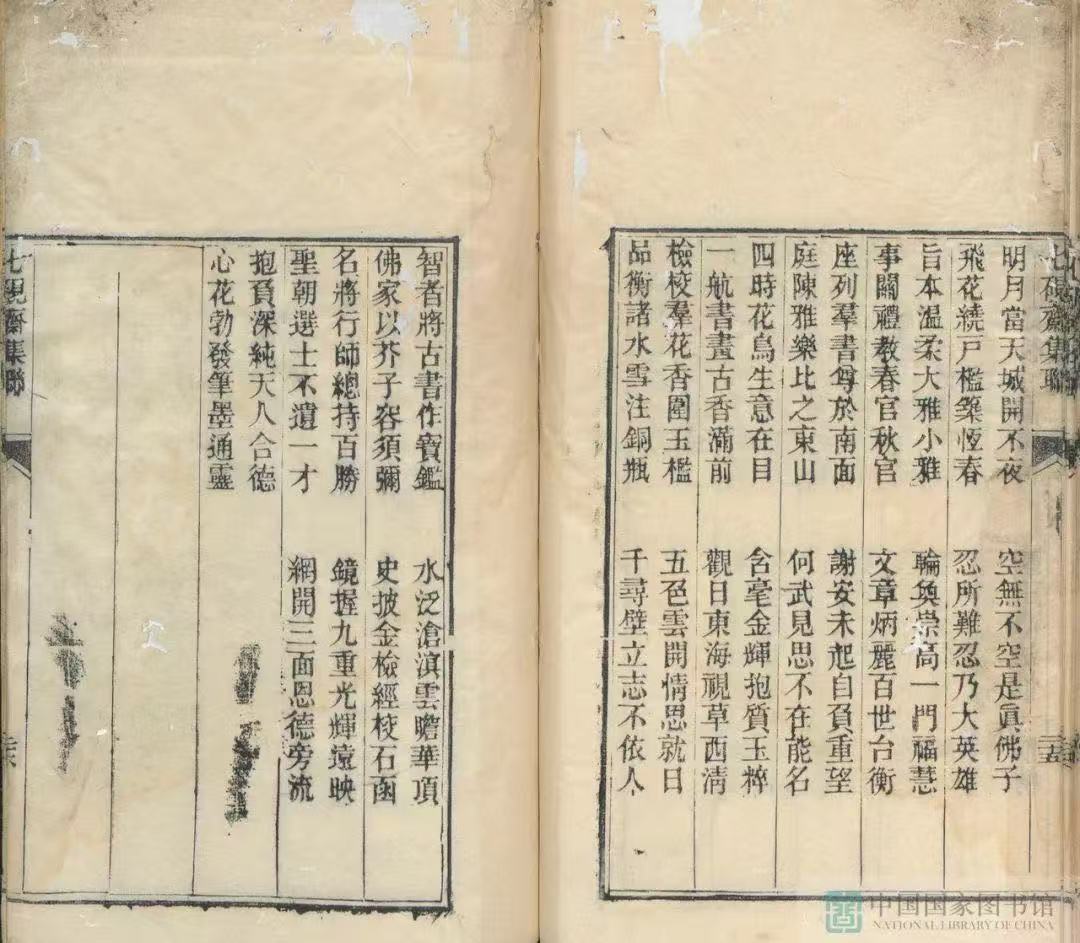 七硯齋集聯
明月當天城開不夜 空無不空是眞佛子
飛花繞戶檻築恆春 忍所難忍乃大英雄
旨本溫柔大雅小雅 輪奐崇高一門福慧
事關禮教春官秋官 文章炳麗百世台衡
座列羣書尊於南面 謝安未起自負重望
庭陳雅樂比之東山 何武見思不在能名
四時花鳥生意在目 含毫金輝抱質玉粹
一航書畫古香滿前 觀日東海視草西淸
檢校羣花香圍玉檻 五色雲開情思就日
品衡諸水雪注銅瓶 千尋壁立志不依人
智者將古書作寶鑑 水泛滄溟雲瞻華項
佛家以芥子容須彌 史披金檢經校石函
名將行師總持百勝 鏡握九重光輝遠映
聖朝選士不遺一才 網開三面恩德旁流
抱負深純天人合德
心花勃發筆墨通靈
七硯齋集聯
中国国家图书馆
NATIONAL LIBRARY OF CHINA